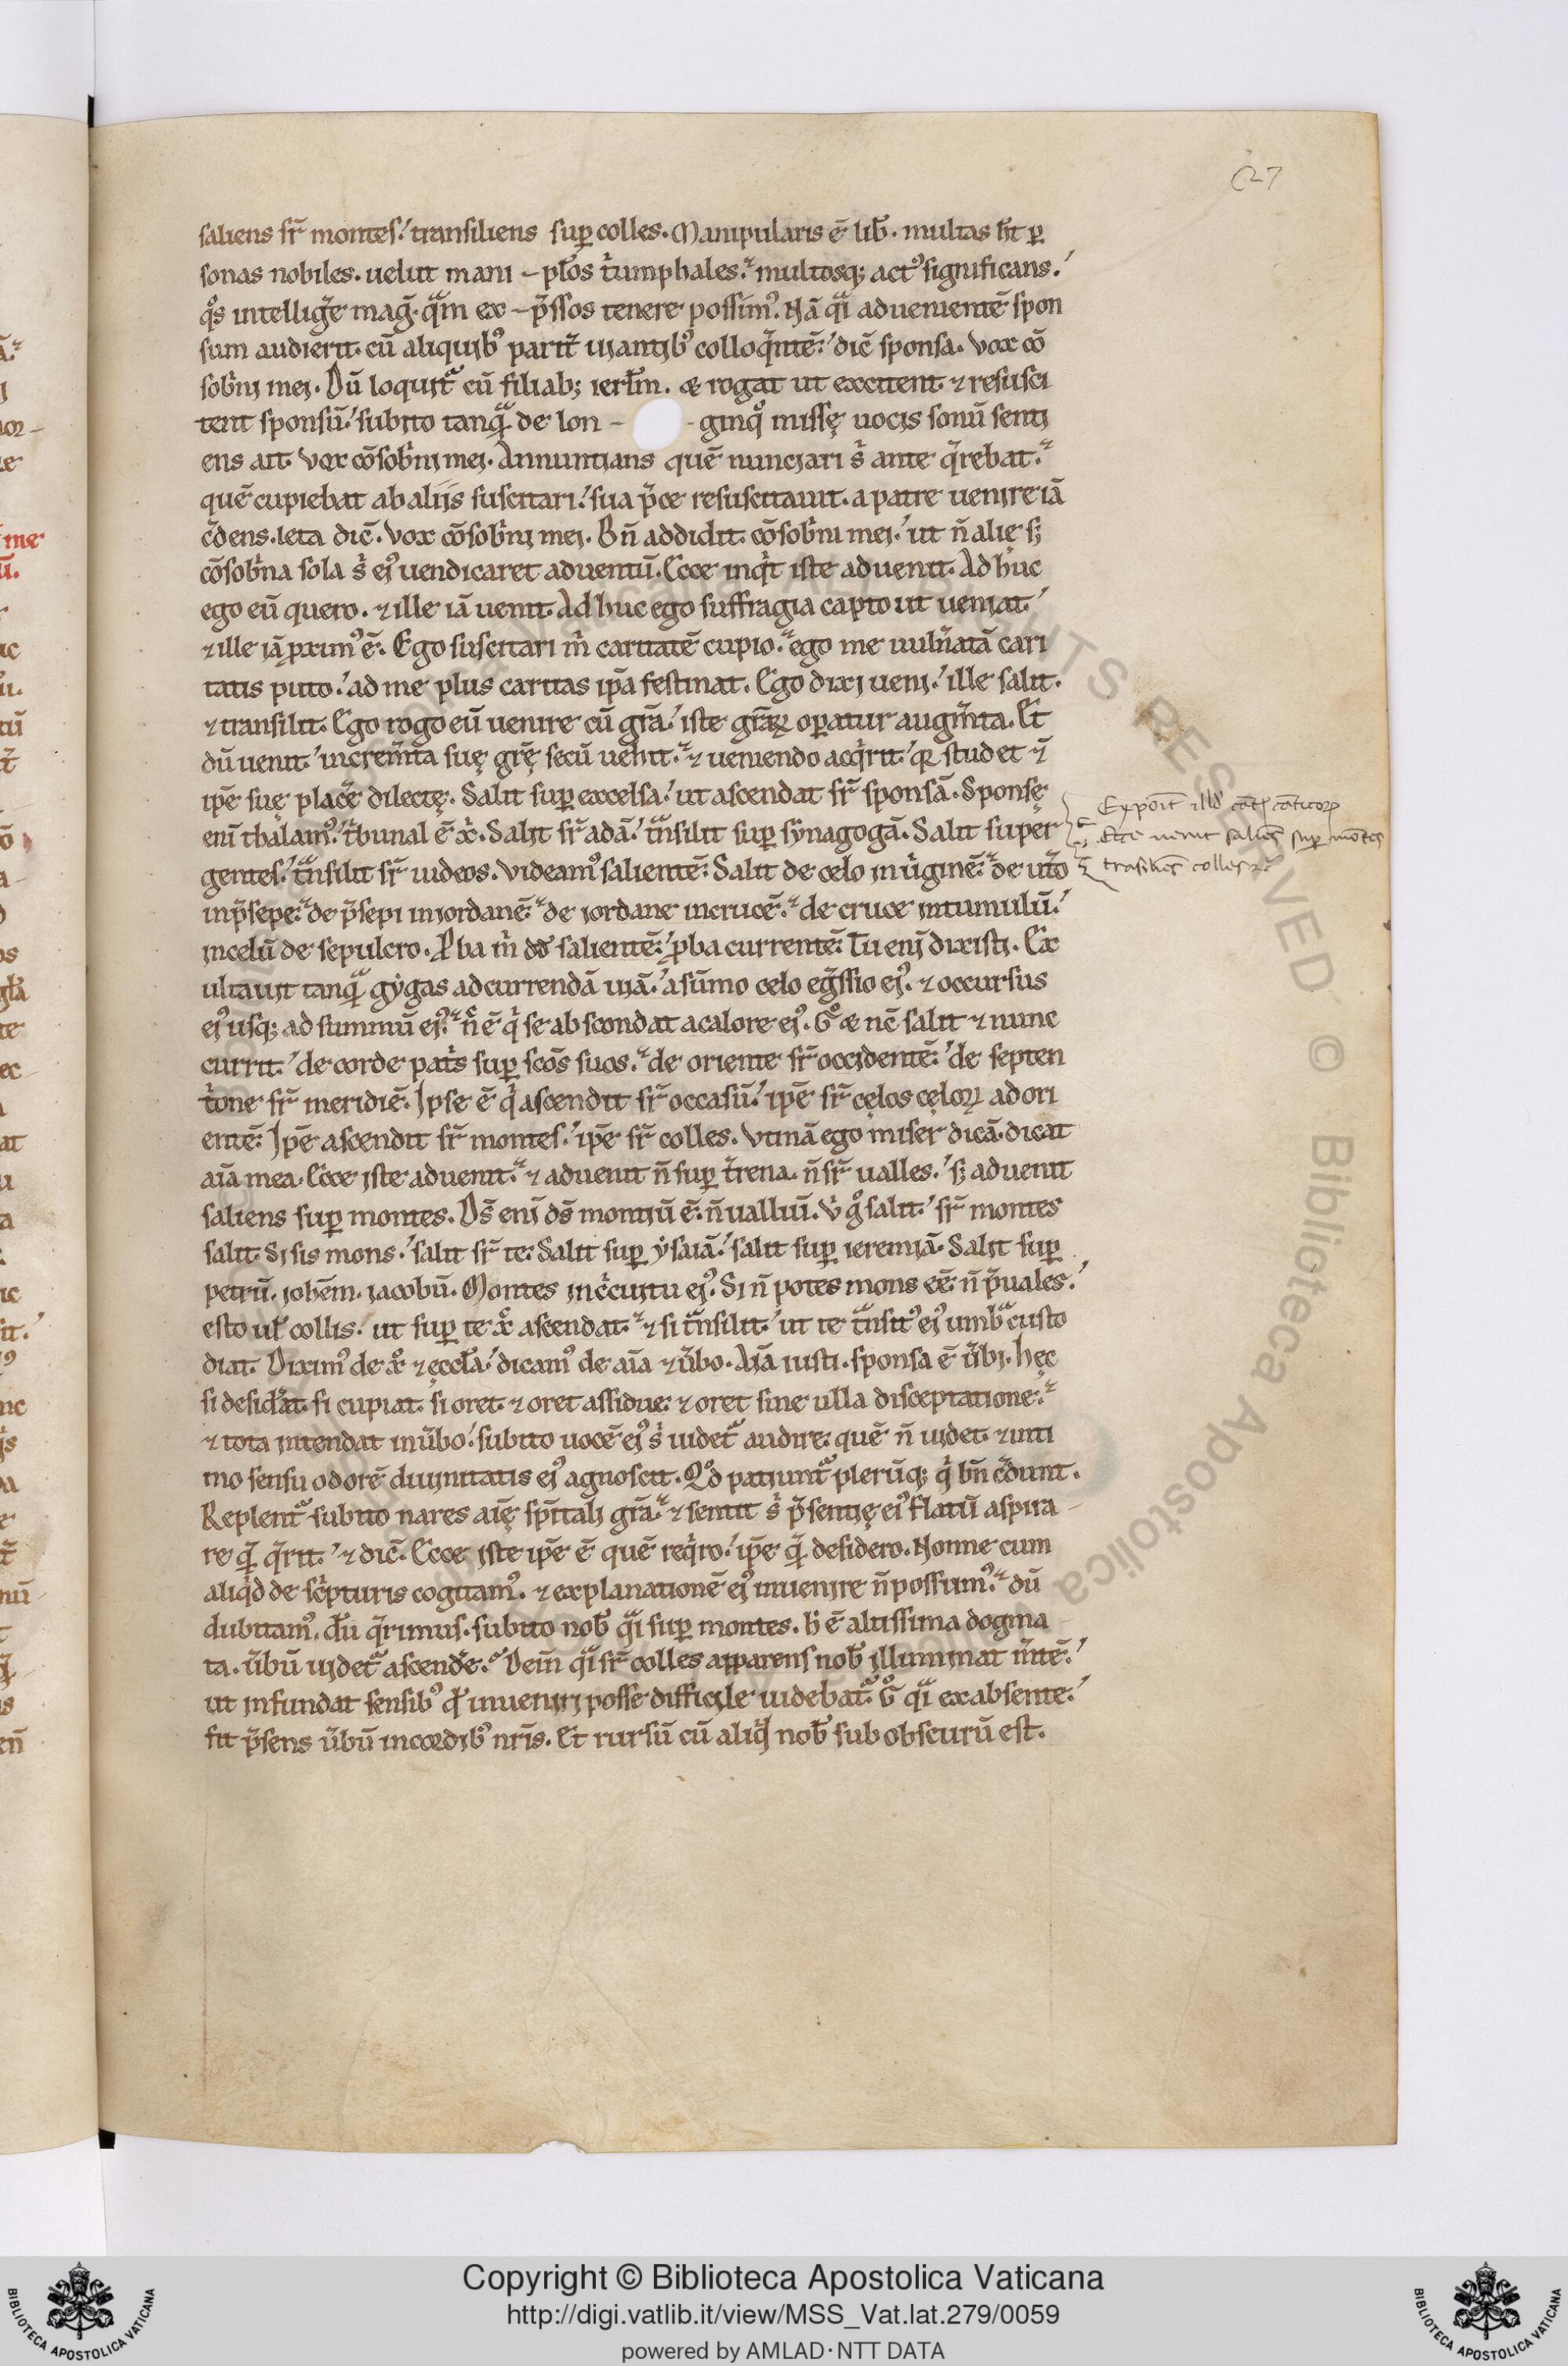 27
saliens sr̄ montes. transiliens sup colles. Manipularis ē lib̄. multas h̄t p
sonas nobiles. uelut mani - pl̄os t'umphales. multosq; act9 significans.
q°s intelliḡe mag̃. q̃m ex - p̃ssos tenere possim9. Nā q̃i aduenientē spon
sum audierit. cū aliquib9 parit̃ uiantib9 colloq̃ntē. dic̄ sponsa. vox cō
sob'ni mei. Dū loquit̃ cū filiab; ierl̄m. & rogat ut excitent ⁊ resusci
tent sponsū. subito tanq̃ de lon - - ginq° missę uocis sonū senti
ens ait. vox cōsob'ni mei. Annuntians quē nunciari s' ante q̃rebat.
quē cupiebat ab aliis suscitari. sua p̃ce resuscitauit. a patre uenire iā
c̃dens. leta dic̄. vox cōsob'ni mei. Bn̄ addidit. cōsob'ni mei. ut n̄ alię s;
cōsob'na sola s' ei9 uendicaret aduentū. Ecce inq't iste aduenit. Ad huc
ego eū quero. ⁊ ille iā uenit. Ad huc ego suffragia capto ut ueniat.
⁊ ille iā pxim9 ē. Ego suscitari m' caritatē cupio. ego me uuln̄atā cari
tatis puto. ad me plus caritas ip̄a festinat. Ego dixi ueni. ille salit.
⁊ transilit. Ego rogo eū uenire cū gr̄a. iste gr̄aꝝ opatur augm̄ta. Et
dū uenit. increm̄ta suę gr̄ę secū uehit. ⁊ ueniendo acq'rit. qꝛ studet ⁊
ip̄e suę plac̄e dilectę. Salit sup excelsa. ut ascendat sr̄ sponsā. Sponsę
eni thalam9. t'bunal ē x'. Salit sr̄ adā. t̃nsilit sup synagogā. Salit super
gentes. t̃nsilit sr̄ iudeos. videam9 salientē. Salit de celo in u'ginē. de ut̄o
in p̃sepe. de p̃sepi in iordanē. de iordane in crucē. de cruce in tumulū.
in celū de sepulcro. Pba m' dd̄ salientē. pba currentē. Tu eni dixisti. Ex
ultauit tanq̃ gygas ad currendā uiā. a sūmo celo eg̃ssio ei9. ⁊ occursus
ei9 usq; ad summū ei9. n̄ ē q' se abscondat a calore ei9. G° & nc̄ salit ⁊ nunc
currit. de corde pat's sup sc̄os suos. de oriente sr̄ occidentē. de septen
t'one sr̄ meridiē. Ipse ē q' ascendit sr̄ occasū. ip̄e sr̄ cęlos cęloꝝ ad ori
entē. Ip̄e ascendit sr̄ montes. ip̄e sr̄ colles. vtinā ego miser dicā. dicat
aīa mea. Ecce iste aduenit. ⁊ aduenit n̄ sup t̃rena. n̄ sr̄ ualles. s; aduenit
saliens sup montes. Ds̄ eni ds̄ montiū ē. n̄ ualliū. v' g° salit. sr̄ montes
salit. Si sis mons. salit sr̄ te. Salit sup ysaiā. salit sup ieremiā. Salit sup
petrū. ioh̄em. iacobū. Montes in c'cuitu ei9. Si n̄ potes mons ēē. n̄ p̃uales.
esto ul̄ collis. ut sup te x̄ ascendat. ⁊ si t̃nsilit. ut te t̃nsit9 ei9 umb̃ custo
diat. Dixim9 de x° ⁊ ęccl̄a. dicam9 de aīa ⁊ ũbo. Aīa iusti. sponsa ē ũbi. hęc
si desid̄at. si cupiat. si oret. ⁊ oret assidue. ⁊ oret sine ulla disceptatione.
⁊ tota intendat in ũbo. subito uocē ei9 s' uidet̃ audire. quē n̄ uidet. ⁊ inti
mo sensu odorē diuinitatis ei9 agnoscit. Qd̄ patiunt̃ plerūq; q' bn̄ c̃dunt.
Replent̃ subito nares aīę sp̄itali gr̄a. ⁊ sentit s' p̃sentię ei9 flatū aspira -
re q̃ q̃rit. ⁊ dic̄. Ecce iste ip̄e ē quē req'ro. ip̄e q̃ desidero. Nonne cum
aliq'd de sc'pturis cogitam9. ⁊ explanationē ei9 inuenire n̄ possum9. dū
dubitam9. dū q̃rimus. subito nob̄ q̃i sup montes. h' ē altissima dogma
ta. ũbū uidet̃ ascend̄e. Dein̄ q̃i sr̄ colles apparens nob̄ illuminat m̄tē.
ut infundat sensib9 qd̄ inueniri posse difficile uidebat̃. G° q̃i ex absente.
fit p̃sens ũbū in cordib9 nr̄is. Et rursū cū aliq'd nob̄ sub obscurū est.
Exponit illd̄ cāt. cāticoꝝ
Ecce uenit saliēs sup mōtes
trāsiliēs colles
Copyright © Biblioteca Apostolica Vaticana
http://digi.vatlib.it/view/MSS_Vat.lat.279/0059
powered by AMLAD·NTT DATA
BIBLIOTECA APOSTOLICA VATICANA
BIBLIOTECA APOSTOLICA VATICANA